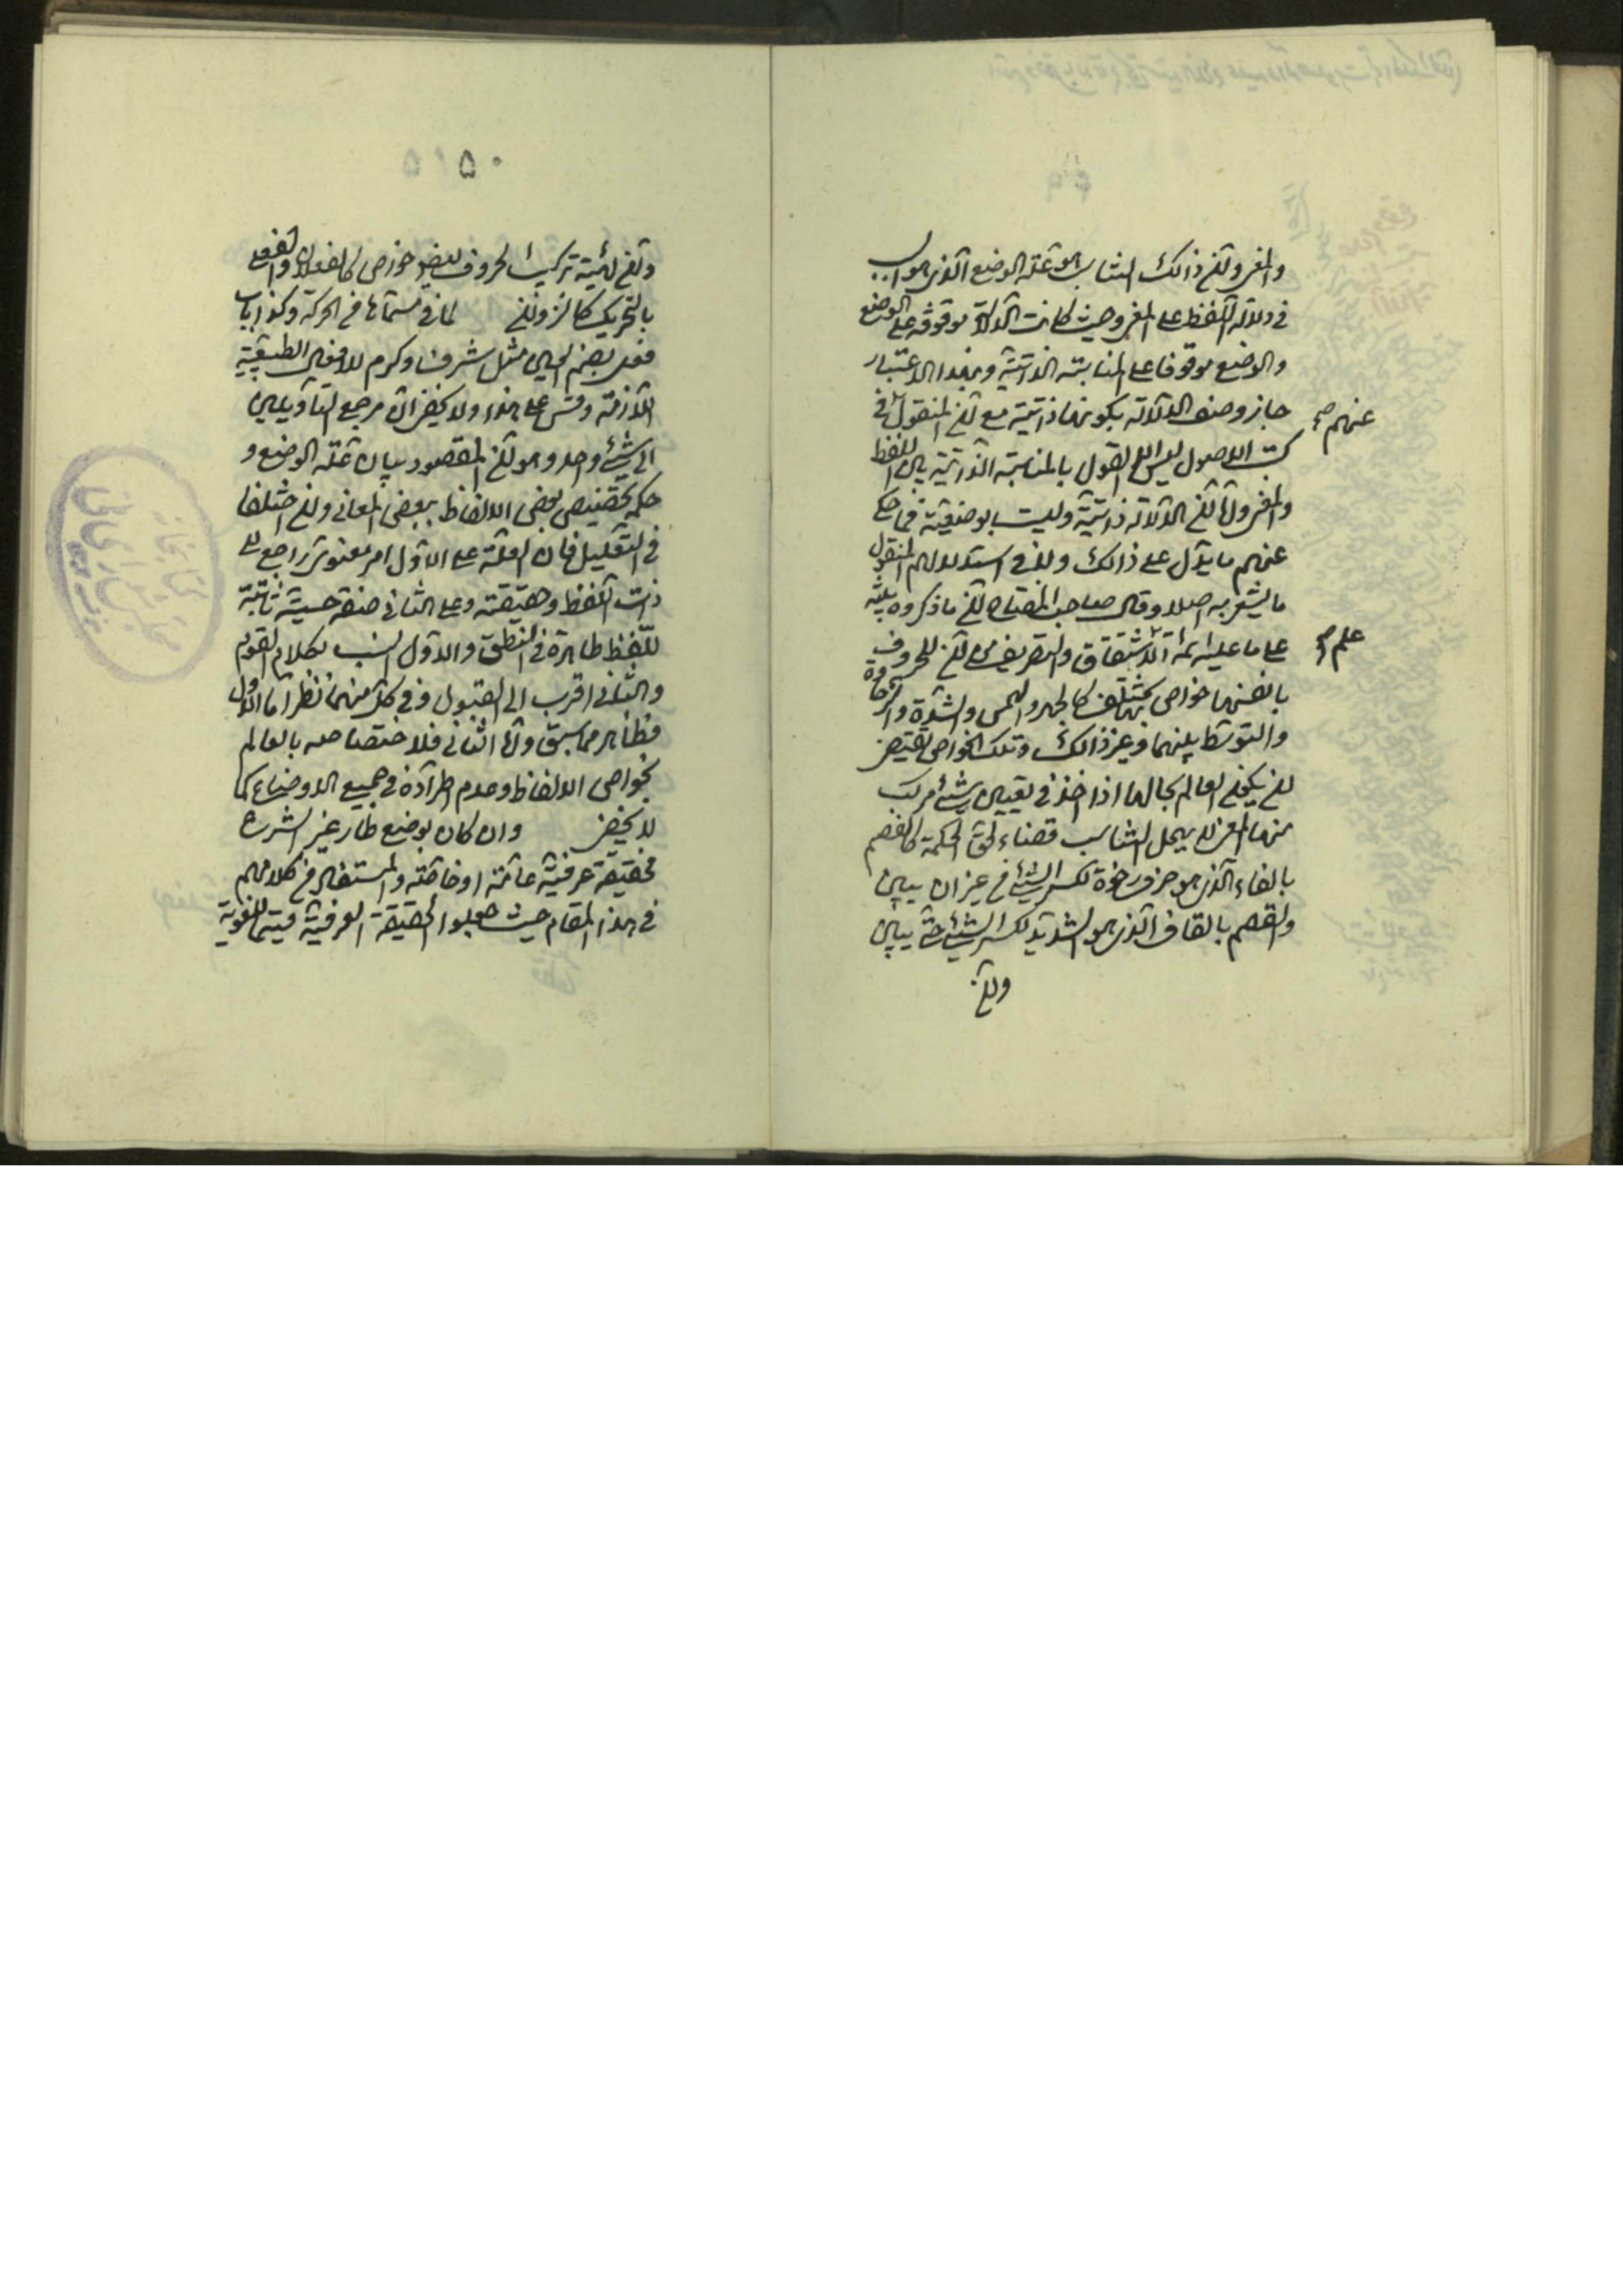 والمعنى وانّ ذالك التناسب هو علّة الوضع الّذى هو السبب
فى دلالة اللّفظ على المعنى وحيث كانت الدّلالة موقوفة على الوضع
والوضع موقوفا على المناسبة الذاتيّة وبهذا الاعتبار
جاز وصف الدلالة بكونها ذاتيّة مع انّ المنقول عنهم فى
كتب الاصول ليس الّا القول بالمناسبة الذاتيّة بين اللفظ
والمعنى وامّا انّ الدّلالة ذاتيّة وليست بوضعيّة فما حكى
عنهم ما يدلّ على ذالك وليس فى استدلالهم المنقول
ما يشعر به اصلا وقال صاحب المفتاح انّ ما ذكروه تنبيه
على ما عليه ائمّة علم الاشتقاق والتصريف من انّ للحروف
بانفسها خواص بها تختلف كالجهر والهمس والشدّة والرخاوة
والتوسّط بينهما وغير ذالك وتلك الخواص تقتضى
ان يكون العالم بحالها اذا اخذ فى تعيين شىء مركّب
منها لمعنى لا يهمل التناسب قضاء لحقّ الحكمة كالفصم
بالفاء الّذى هو حرف رخوة لكسر الشىء من غير ان يبين
والقصم بالقاف الّذى هو لشديد لكسر الشىء حتّى يبين
وانّ
۵۱۵۰
وانّ لهيئة تركيب الحروف ايضا خواص كالفعلان والفعلى
بالتحريك كالنزوان لما فى مسمّاها من الحركة وكذا باب
فعل بضم العين مثل شرف وكرم للافعال الطبيعيّة
اللازمة وقس على هذا ولا يخفى انّ مرجع التأويلين
الى شىء واحد وهو انّ المقصود بيان علّة الوضع و
حكمة تخصيص بعض الالفاظ ببعض المعانى وان اختلفا
فى التعليل فانّ العلّة على الاوّل امر معنوىّ راجع الى
ذات اللّفظ وحقيقته وعلى الثانى صفة حسيّة ثابتة
للّفظ ظاهرة فى النطق والاوّل انسب بكلام القوم
والثانى اقرب الى القبول وفى كلّ منهما نظر امّا الاوّل
فظاهر ممّا سبق وامّا الثانى فلاختصاصه بالعالم
بخواص الالفاظ وعدم اطّراده فى جميع الاوضاع كما
لا يخفى وان كان بوضع طار غير الشرع
فحقيقة عرفيّة عامّة او خاصّة والمستفاد من كلامهم
فى هذا المقام حيث جعلوا الحقيقة العرفيّة قسيما للّغويّة